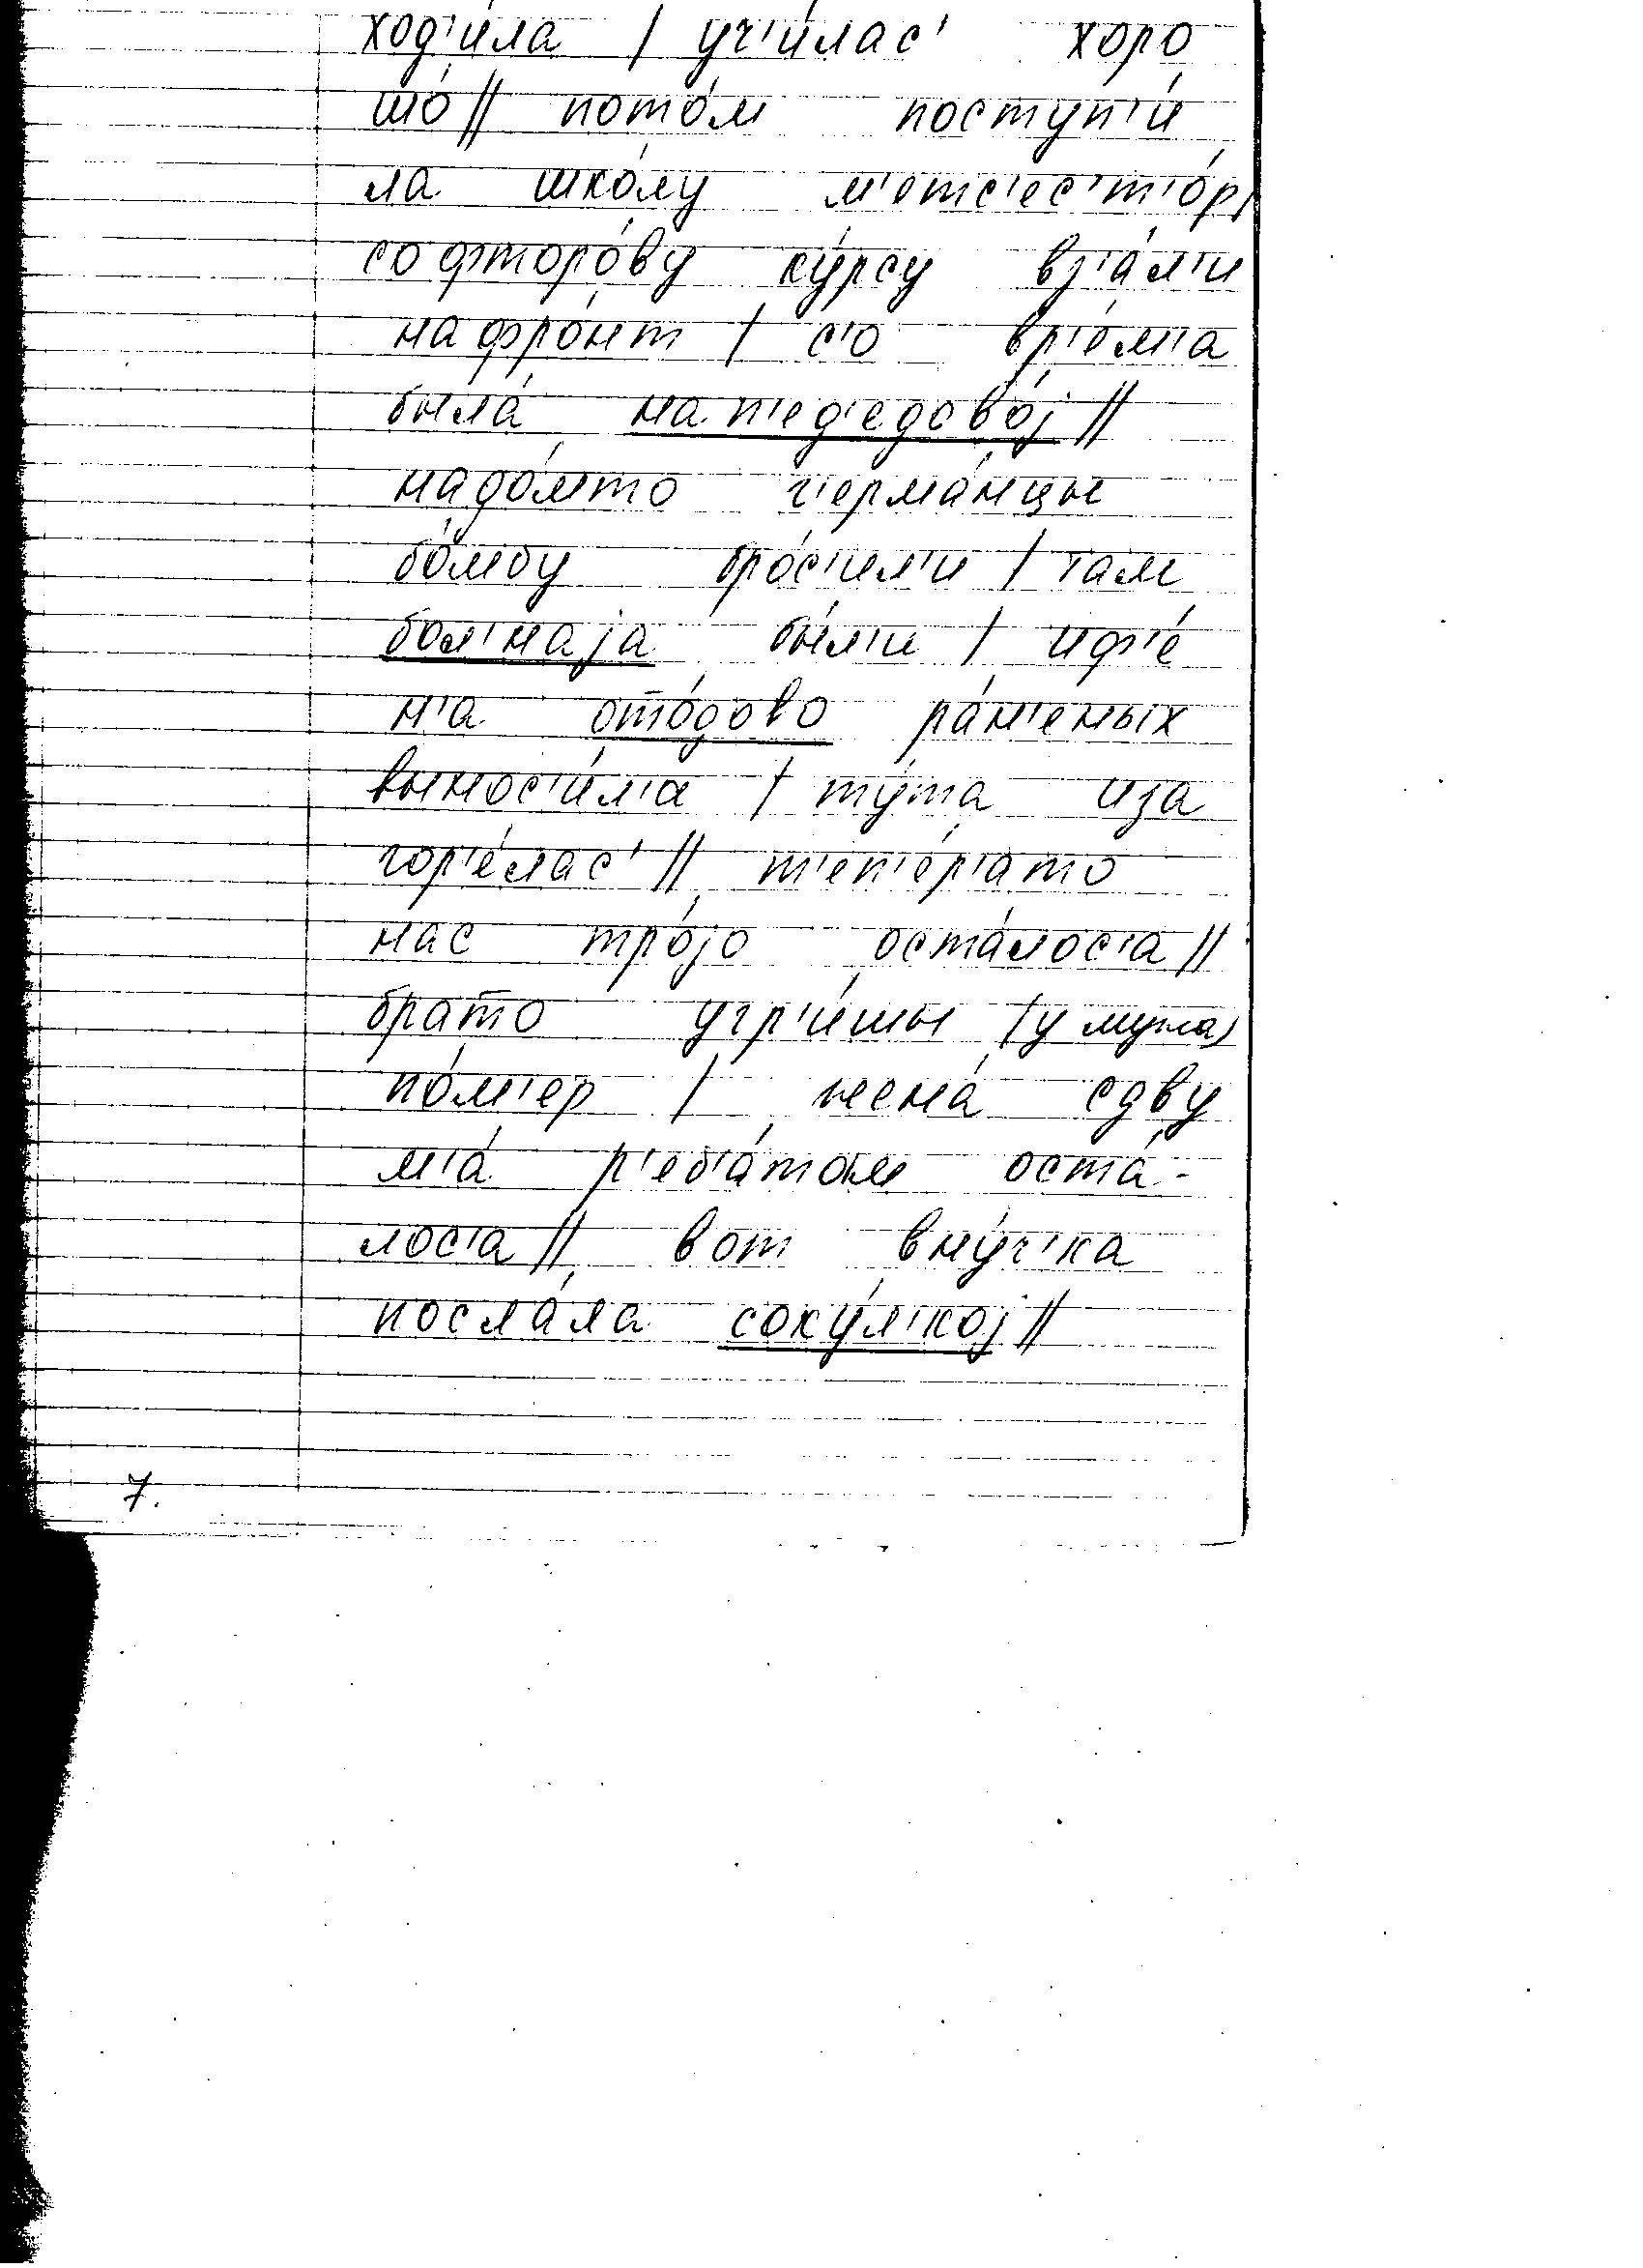 ход'и́ла / уч'и́лас' хоро
шо́ // пото́м поступ'и́
ла шко́лу м'етс'ес'т'о́р /
со фторо́ву ку́рсу вз'а́л'и
на фро́нт / с'о вр'е́м'а
была́ на п'ер'едово́j //
на до́мто г'ерма́нцы
бо́мбу бро́с'ил'и / там
бол'наjа бы́л'и / и ф'е́
н'а отто́дово ра́н'еных
вынос'и́л'а / ту́та и за
гор'е́лас' // т'еп'е́р'ато
нас тро́jо оста́лос'а //
братто у гр'и́шы (у мужа)
по́м'ер / жена́ с дву
м'а́ р'еб'а́там оста́-
лос'а // вот вну́ч'ка
посла́ла соку́л'коj //
7.